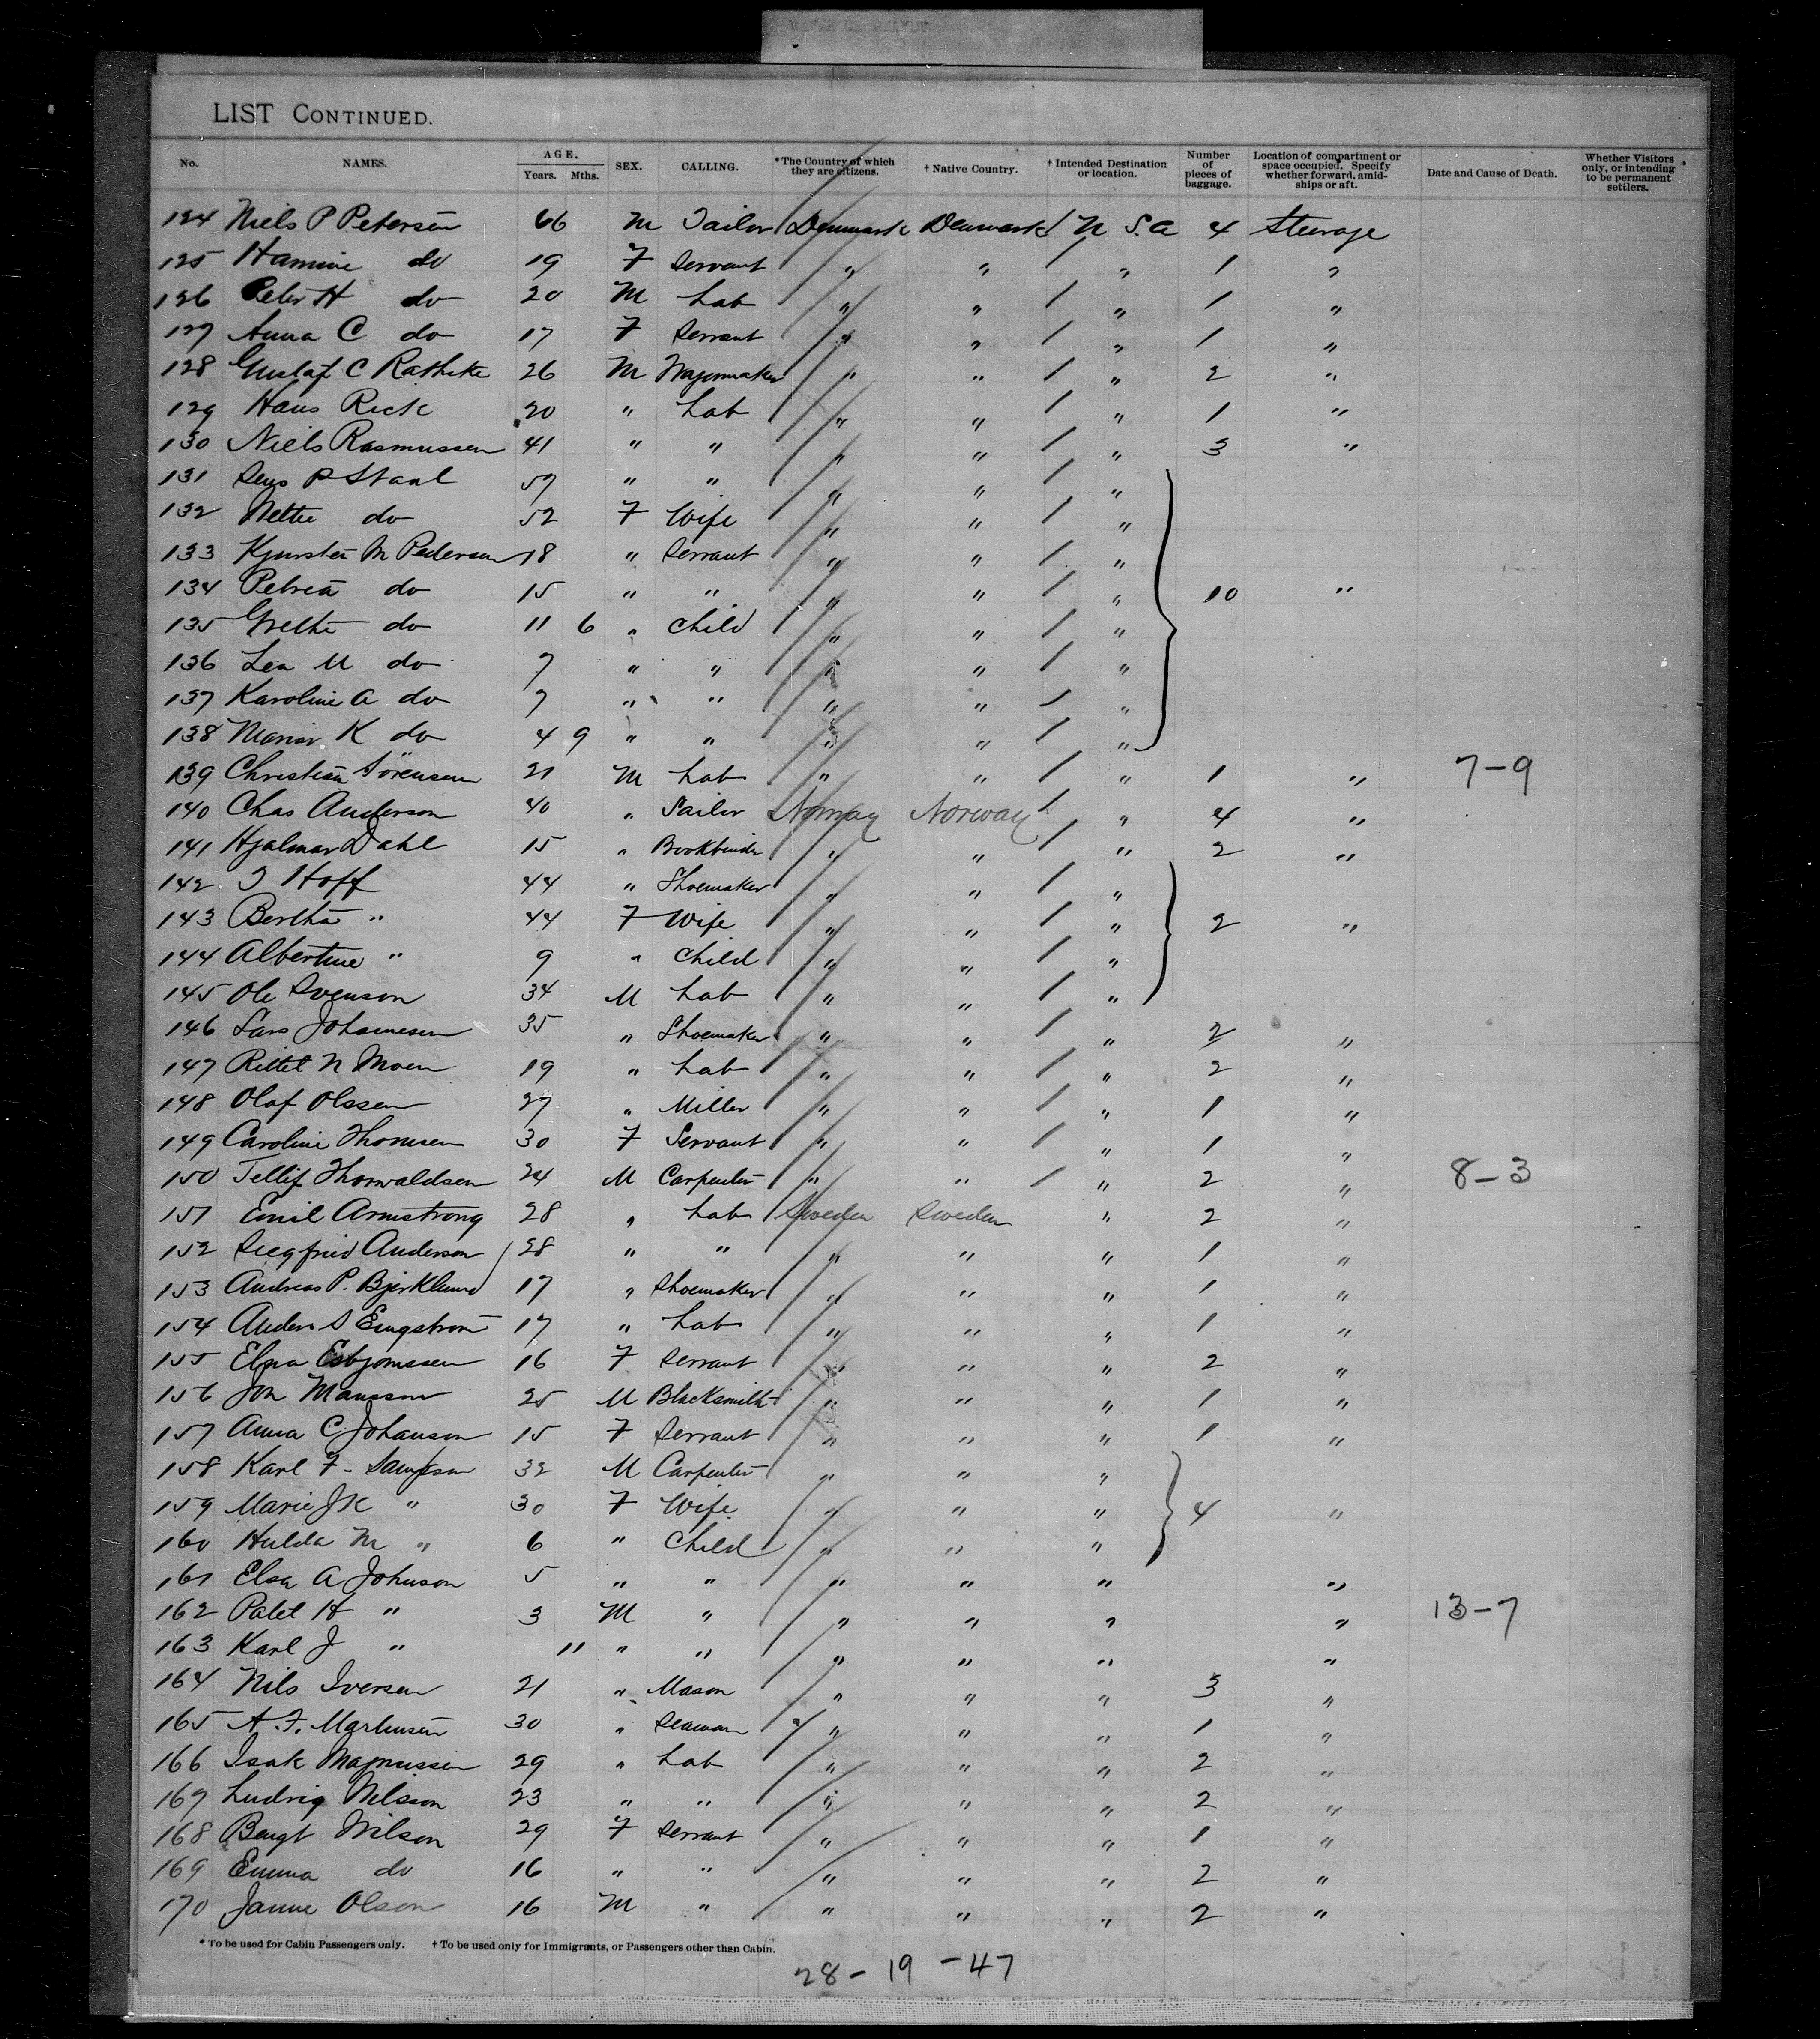 LIST CONTINUED.
No. NAMES. AGE. Years. Mths. SEX. CALLING. *The Country of which they are citizens. † Native Country. † Intended Destination or location. Number of pieces of baggage. Location of compartment or space occupied. Specify whether forward, amidships or aft. Date and Cause of Death. Whether Visitors only, or intending to be permanent settlers.
124 Niels P Petersen 66 M Tailor Denmark Denmark / U S.A 4 Steerage
125 Hamine do 19 F Servant " " / " 1 "
126 Peter H do 20 M Lab " " / " 1 "
127 Anna C do 17 F Servant " " / " 1 "
128 Gustaf C Rathke 26 M Wagonmaker " " / " 2 "
129 Hans Rick 20 " Lab " " / " 1 "
130 Niels Rasmussen 41 " " " " / " 3 "
131 Jens P Staal 57 " " " " / "
132 Mettie do 52 F Wife " " / "
133 Kjirsten M Pedersen 18 " Servant " " / "
134 Petrea do 15 " " " " / " 10 "
135 Grethe do 11 6 " Child " " / "
136 Lea M do 7 " " " " / "
137 Karoline A do 7 " " " " / "
138 Marian K do 4 9 " " " " / "
139 Christian Sörensen 21 M Lab " " / " 1 " 7-9
140 Chas Anderson 40 " Sailor Norway Norway / " 4 "
141 Hjalmar Dahl 15 " Bookbinder " " / " 2 "
142 J Hoff 44 " Shoemaker " " / "
143 Bertha " 44 F Wife " " / " 2 "
144 Albertine " 9 " Child " " / "
145 Ole Svenson 34 M Lab " " / "
146 Lars Johannesen 35 " Shoemaker " " / " 2 "
147 N Moen 19 " Lab " " / " 2 "
148 Olaf Olssen 27 " Miller " " / " 1 "
149 Caroline Thomsen 30 F Servant " " / " 1 "
150 Tellif Thorwaldsen 24 M Carpenter " " / " 2 " 8-3
151 Emil Armstrong 28 " Lab Sweden Sweden " 2 "
152 Siegfried Anderson 28 " " " " " 1 "
153 Andreas P. Bjorklund 17 " Shoemaker " " " 1 "
154 Anders S Engstrom 17 " Lab " " " 1 "
155 Elna Esbjornssen 16 F Servant " " " 2 "
156 Jon Mansson 25 M Blacksmith " " " 1 "
157 Anna C Johanson 15 F Servant " " " 1 "
158 Karl F- Sampson 32 M Carpenter " " "
159 Marie J K " 30 F Wife " " " 4 "
160 Hulda M " 6 " Child " " "
161 Elsa A Johnson 5 " " " " " "
162 H " 3 M " " " " " 13-7
163 Karl J " 11 " " " " " "
164 Nils Iversen 21 " Mason " " " 3 "
165 A. F. 30 " Seaman " " " 1 "
166 Isak Magnussen 29 " Lab " " " 2 "
167 Ludvig Nelson 23 " " " " " 2 "
168 Bengt Nilson 29 F Servant " " " 1 "
169 Emma do 16 " " " " " 2 "
170 Janne Olson 16 M " " " " 2 "
* To be used for Cabin Passengers only. † To be used only for Immigrants, or Passengers other than Cabin.
28-19-47